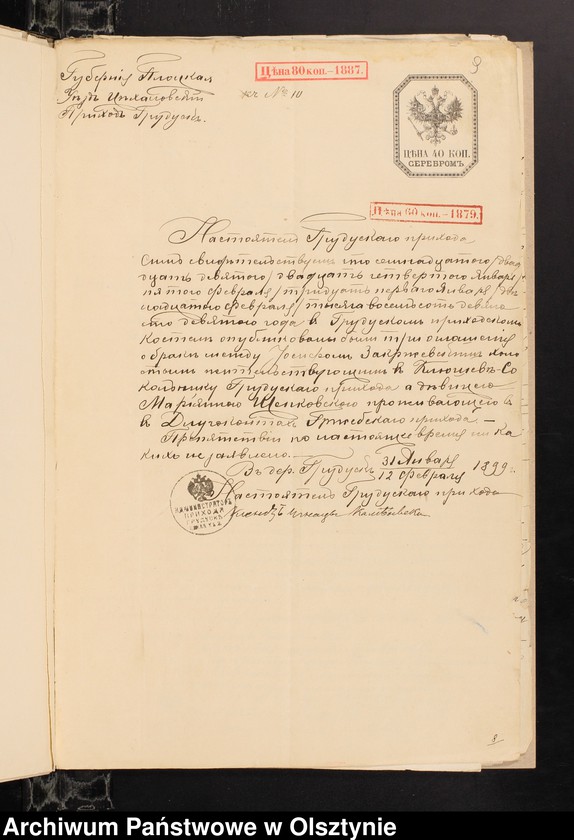 Губернія Плоцкая
Уѣздъ Цѣхановскій
Приходъ Грудускъ.
Цѣна 80 коп.–1887.
къ № 10
9
ЦѢНА 40 КОП.
СЕРЕБРОМЪ
Цѣна 60 коп.–1879.
Настоятель Грудускаго прихода
симъ свидѣтельствуетъ что семнадцатого /двад
цать девятого/ двадцать четвертого Января
/пятого Февраля/ тридцать перваго Января /двѣ
надцатого Февраля/ тысяча восемьсотъ девяно
сто девятого года в Грудускомъ приходскомъ
костелѣ опубликованы были три оглашенія
о бракѣ между Іосифомъ Закржевскимъ холо
стымъ жительствующимъ в
Грудускаго прихода а дѣвицею
Маріянною проживающею
в прихода –
Препятствій по настоящее время ни ка
кихъ не заявлено. –
Въ дер. Грудускъ 31 Января / 12 Февраля 1899 г.
Настоятель Грудускаго прихода
Ксендзъ
АДМИНИСТРАТОРЪ
ПРИХОДА
ГРУДУСКЪ
8
Archiwum Państwowe w Olsztynie